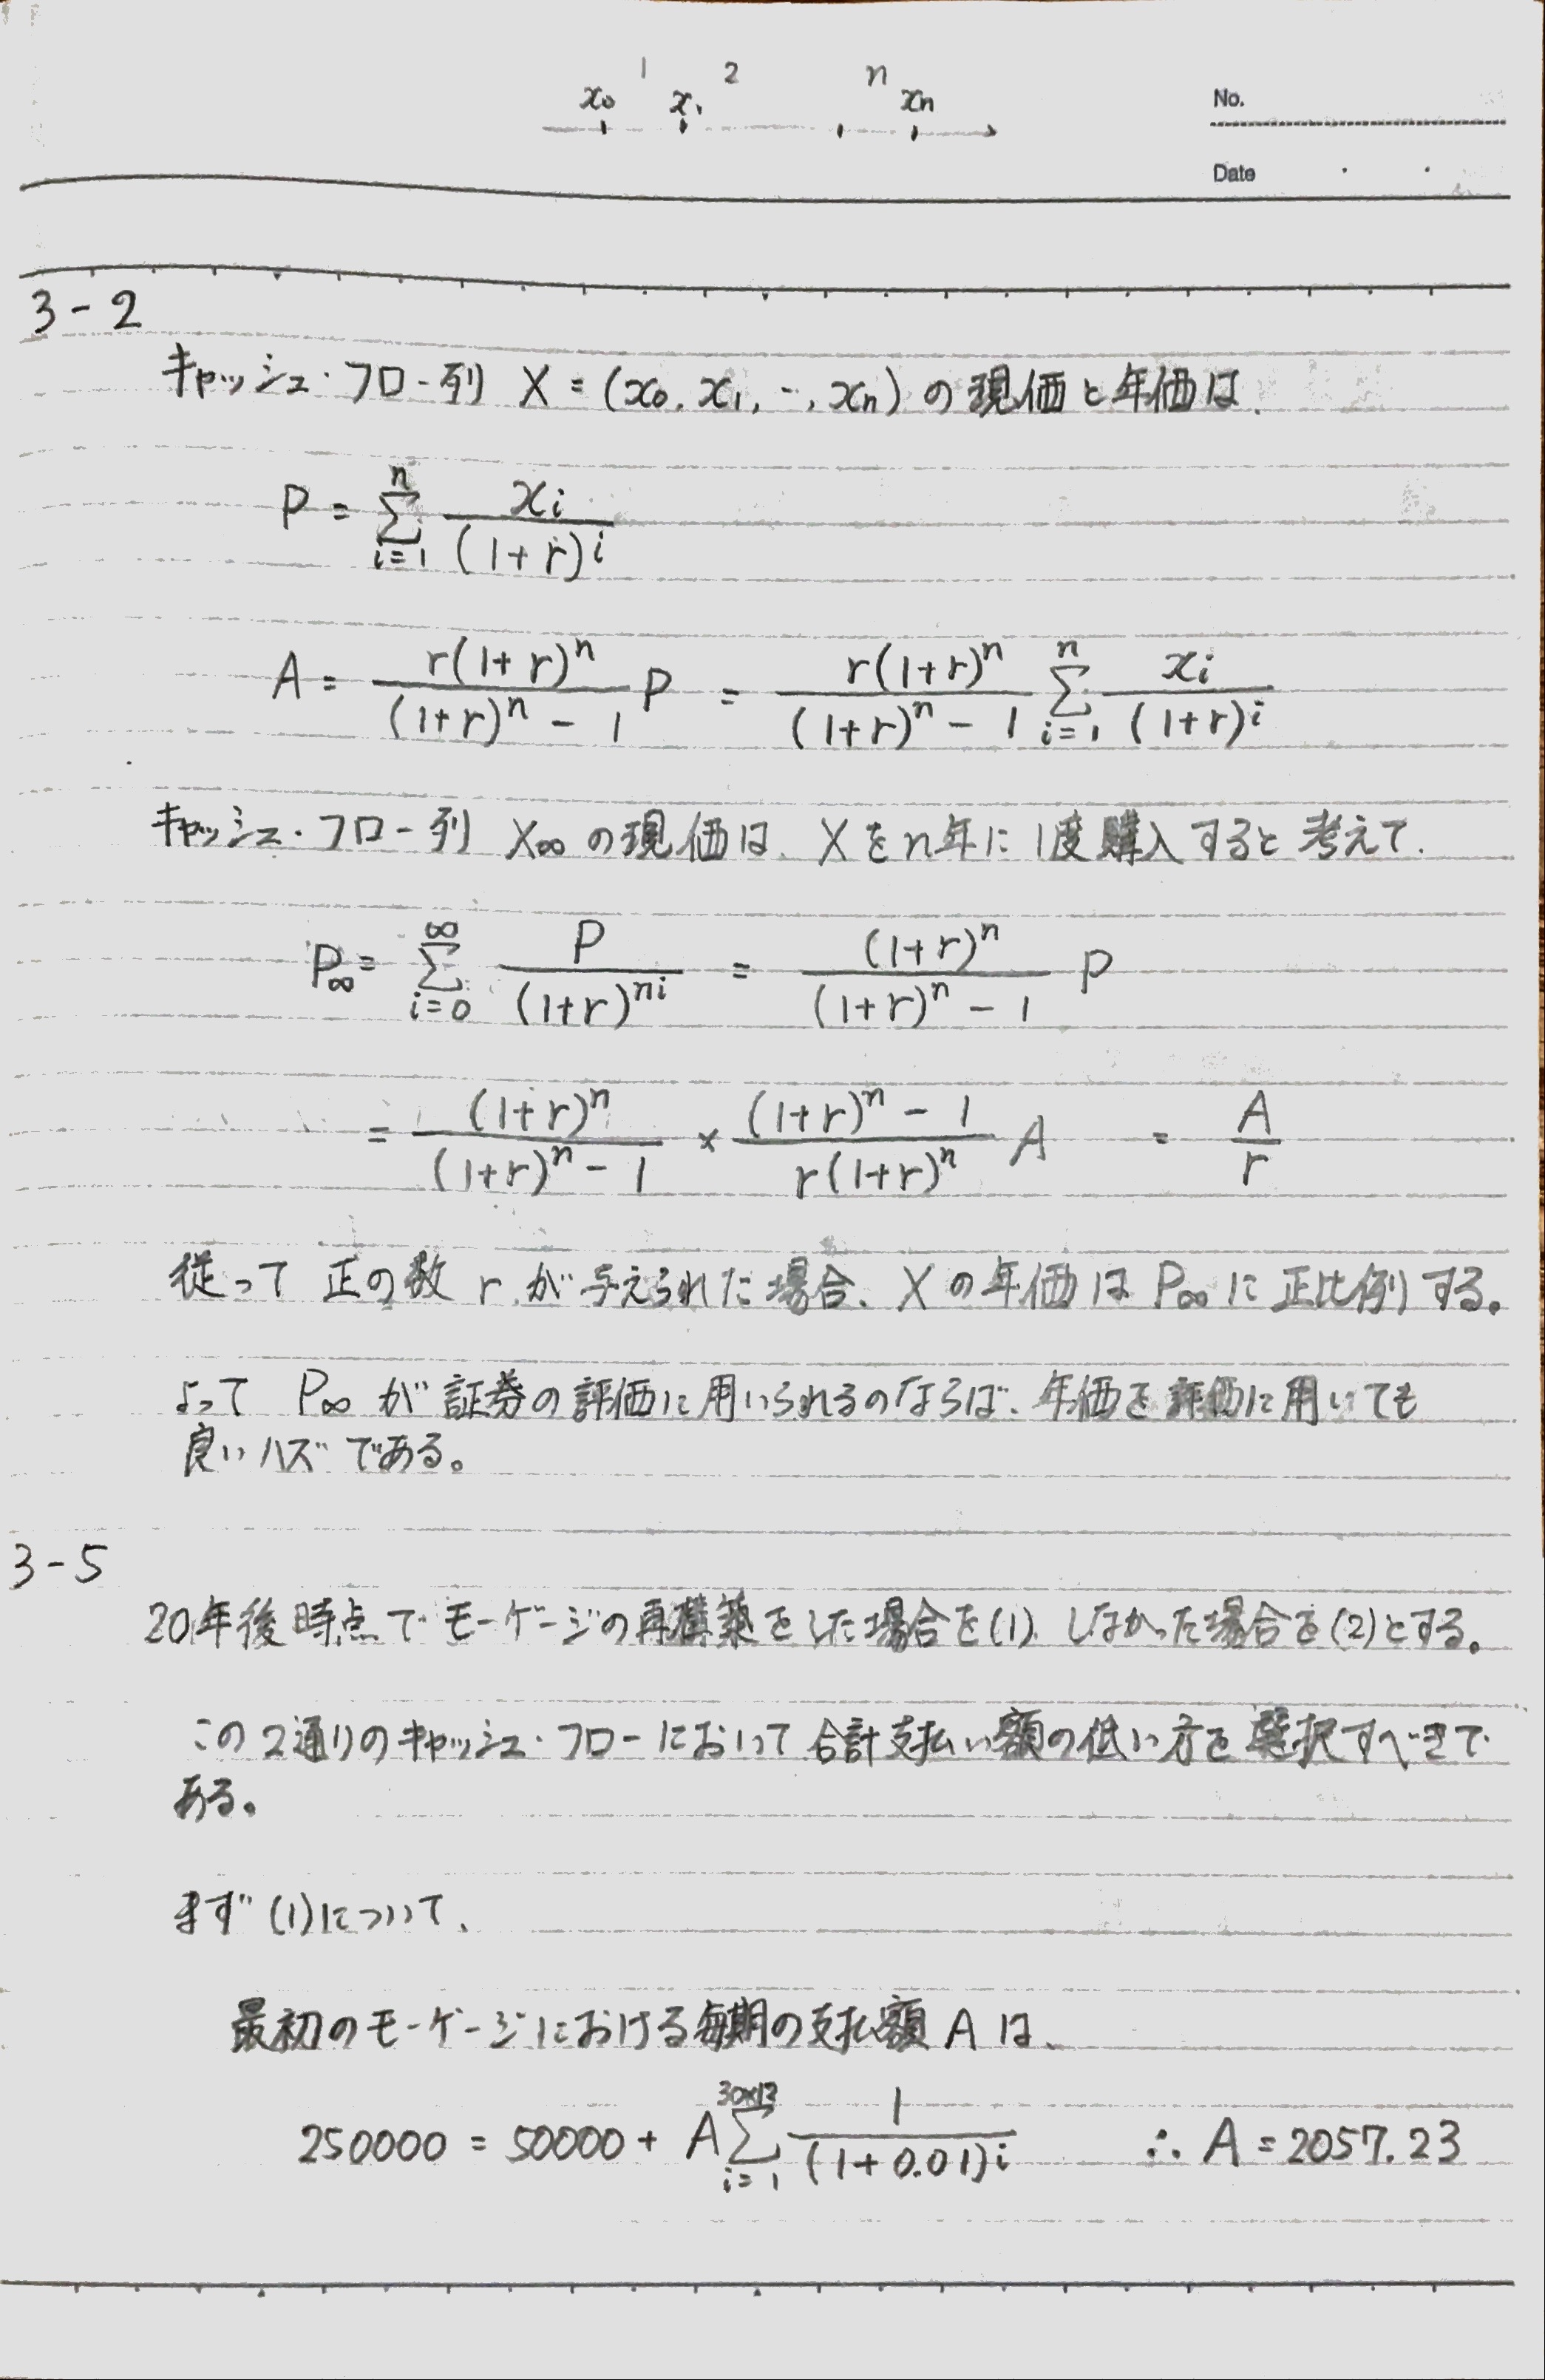 1 2 n
x₀ x₁ xₙ
No.
Date
3-2
キャッシュ・フロー列 X = (x₀, x₁, …, xₙ) の現価と年価は、
P = Σ_{i=1}^{n} xᵢ / (1+r)^i
A = r(1+r)^n / ((1+r)^n - 1) P = r(1+r)^n / ((1+r)^n - 1) Σ_{i=1}^{n} xᵢ / (1+r)^i
キャッシュ・フロー列 X∞ の現価は、Xをn年に1度購入すると考えて、
P∞ = Σ_{i=0}^{∞} P / (1+r)^{ni} = (1+r)^n / ((1+r)^n - 1) P
= (1+r)^n / ((1+r)^n - 1) × ((1+r)^n - 1) / (r(1+r)^n) A = A / r
従って 正の数 r が与えられた場合、Xの年価は P∞ に正比例する。
よって P∞ が証券の評価に用いられるのならば、年価を評価に用いても
良いハズである。
3-5
20年後時点でモーゲージの再構築をした場合を(1)、しなかった場合を(2)とする。
この2通りのキャッシュ・フローにおいて合計支払い額の低い方を選択すべきで
ある。
まず(1)について、
最初のモーゲージにおける毎期の支払額 A は、
250000 = 50000 + A Σ_{i=1}^{30×12} 1 / (1+0.01)^i ∴ A = 2057.23